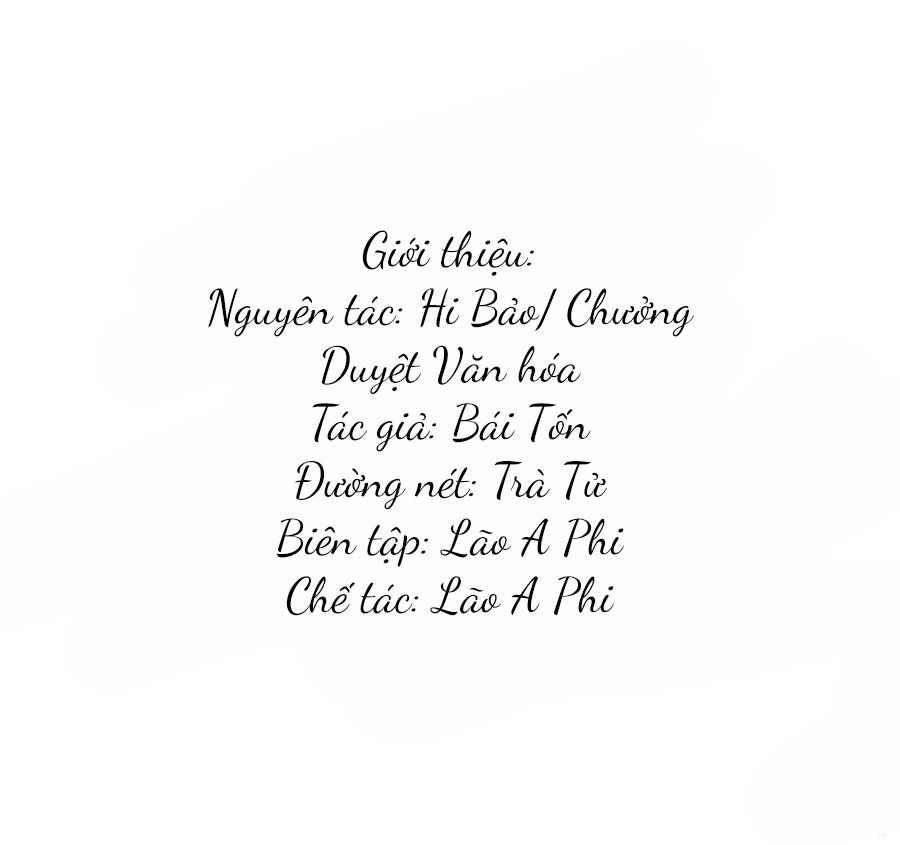 Giới thiệu:
Nguyên tác: Hi Bảo/ Chưởng
Duyệt Văn hóa
Tác giả: Bái Tốn
Đường nét: Trà Tử
Biên tập: Lão A Phi
Chế tác: Lão A Phi